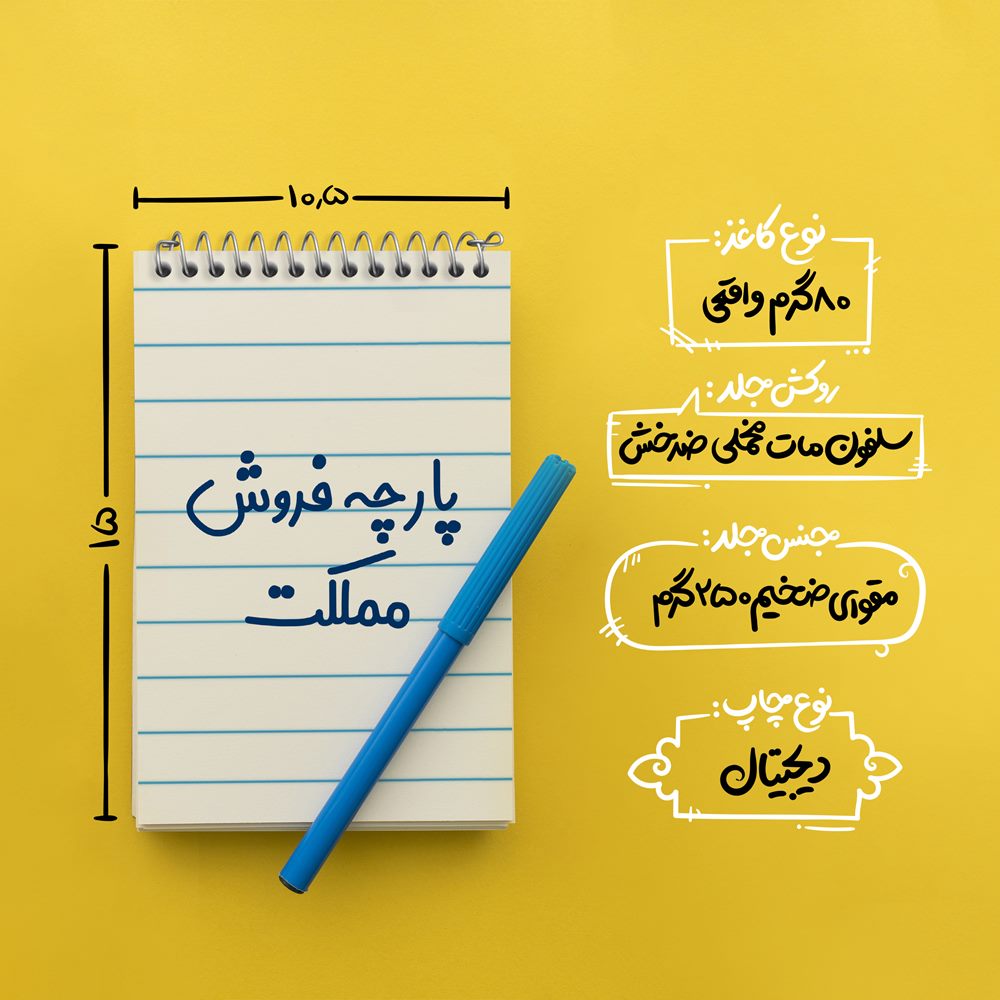 ۱۰٫۵
۱۵
پارچه فروش
مملکت
نوع کاغذ:
۸۰گرم واقعی
روکش جلد:
سلفون مات مخملی ضدخش
جنس جلد:
مقوای ضخیم ۲۵۰گرم
نوع چاپ:
دیجیتال